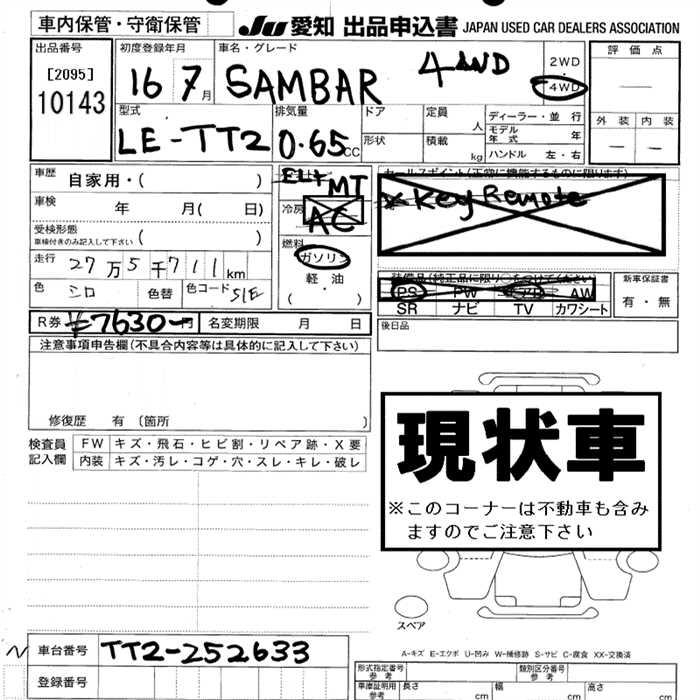 車内保管・守衛保管 JU 愛知 出品申込書 JAPAN USED CAR DEALERS ASSOCIATION
出品番号 初度登録年月 車名・グレード 評価点
[2095] 16 7月 SAMBAR 4WD 2WD
10143 4WD
型式 排気量 ドア 定員 人 ディーラー・並行 外装 内装
LE-TT2 0.65CC 形状 積載 kg モデル年式 年
ハンドル 左・右
車歴 自家用・( )
車検 年 月( 日)
受検形態 ( )
車検付きのみ記入して下さい
走行 27万5千711km
色 シロ 色替 色コード 51E
MT
冷房 AC
燃料
ガソリン
軽・油
( )
セールスポイント(正常に機能するものに限ります)
Key Remote
装備品(純正品に限り○をつけてください) 新車保証書
PS PW AW 有・無
SR ナビ TV カワシート
R券 ¥7630-円 名変期限 月 日 後日品
注意事項申告欄(不具合内容等は具体的に記入して下さい)
修復歴 有 〔箇所 〕
検査員記入欄 FW キズ・飛石・ヒビ割・リペア跡・X要
内装 キズ・汚レ・コゲ・穴・スレ・キレ・破レ
現状車
※このコーナーは不動車も含み
ますのでご注意下さい
スペア
A-キズ E-エクボ U-凹み W-補修跡 S-サビ C-腐食 XX-交換済
車台番号 TT2-252633
登録番号
形式指定番号 参考 類別区分番号 参考
車庫証明用 参考 長さ cm 幅 cm 高さ cm